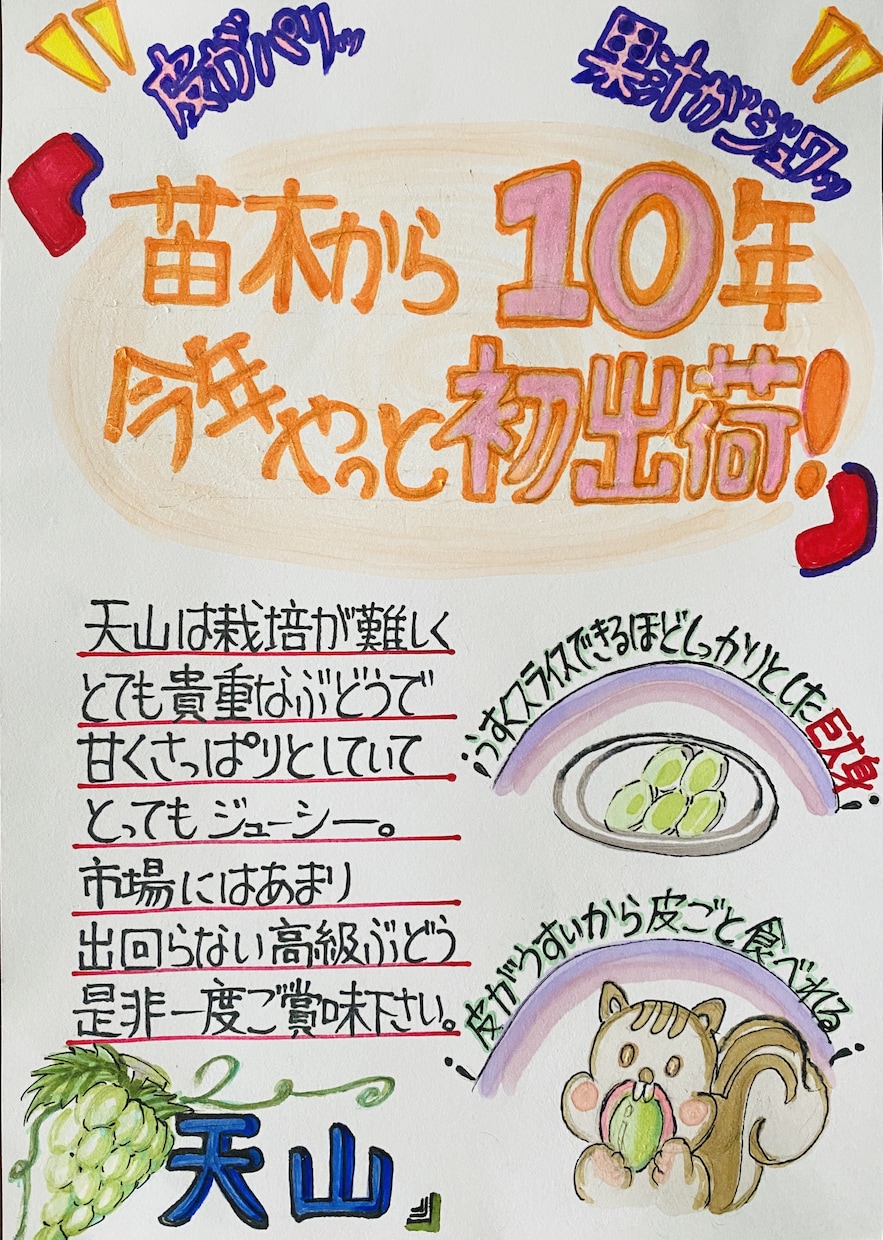 皮がパリッ
果汁がジュワッ
苗木から10年
今年やっと初出荷!
天山は栽培が難しく
とても貴重なぶどうで
甘くさっぱりとしていて
とってもジューシー。
市場にはあまり
出回らない高級ぶどう
是非一度ご賞味下さい。
うすくスライスできるほどしっかりとした巨大身
皮がうすいから皮ごと食べれる
天山